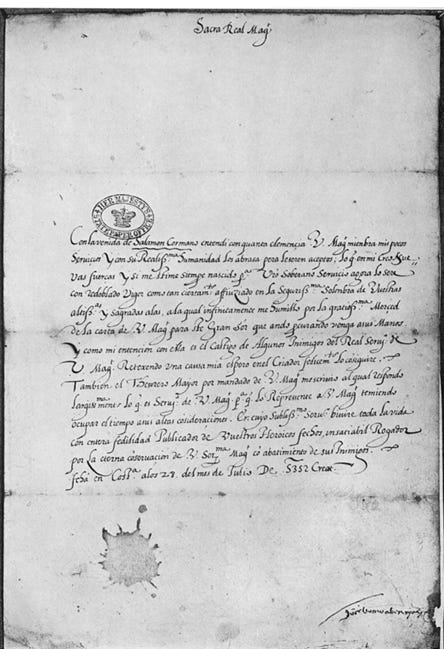 Sacra Real Magᵈ
Con la venida de Salamon Cormano entendi con quanta clemencia V. Magᵈ miembra mis pocos
Servicios y con su Realissᵐᵃ Humanidad los abrasa pera le seren aceptos, lo q̃ en mi
vas fuercas y si me stime siempe nascido pᵃ Vr̃o Soberano Servicio agora lo sere
con redoblado Vigor como tan affiuzado en la Segurissᵐᵃ Sclombra de Vuestras
y Sagradas alas, a la qual infinitamente me humillo por la graciossᵐᵃ Merced
de la carta de V. Magᵈ para ste Gran Sõr que ando pcurando venga a sus Manos
y como mi entencion con ella es el Castigo de Algunos Inimigos del Real Servᵒ de
V. Magᵈ Retexendo una causa mia espero en el Criador lo conquire.
Tambien el Tesorero Mayor por mandado de V. Magᵈ me scrivio al qual respondo
larguissmᵗᵉ lo q̃ es Servᵒ de V. Magᵈ pᵃ q̃ lo Represente a V. Magᵈ temiendo
ocupar el tiempo a sus altas cõsideraciones. En cuyo Servᵒ bivire toda la vida
con entera fedilidad Publicador de Vuestros Heroicos fechos, insaciabil Rogador
por la eterna cõservacion de V. Serᵐᵃ Magᵈ cõ abatimiento de sus Inimigos.
fecha en Costᵃ a los 28. del mes de Julio De 5352 Creaᵉ